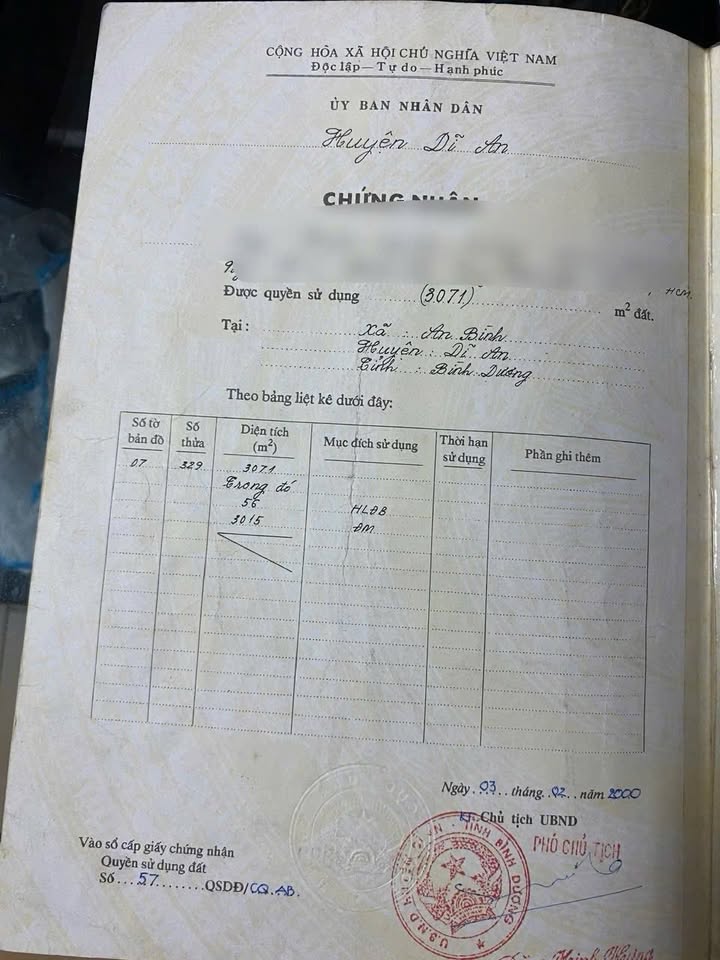 CỘNG HÒA XÃ HỘI CHỦ NGHĨA VIỆT NAM
Độc lập — Tự do — Hạnh phúc
ỦY BAN NHÂN DÂN
Huyện Dĩ An
CHỨNG NHẬN
Được quyền sử dụng (3071) m² đất.
HCM
Tại : Xã : An Bình
Huyện : Dĩ An
Tỉnh : Bình Dương
Theo bảng liệt kê dưới đây:
Số tờ bản đồ Số thửa Diện tích (m²) Mục đích sử dụng Thời hạn sử dụng Phần ghi thêm
07 329 3071
Trong đó
56 HLĐB
3015 ĐM
Ngày 03 tháng 02 năm 2000
Kt Chủ tịch UBND
PHÓ CHỦ TỊCH
Vào sổ cấp giấy chứng nhận
Quyền sử dụng đất
Số 57 QSDĐ/CQ.AB.
U.B.N.D HUYỆN DĨ AN - TỈNH BÌNH DƯƠNG